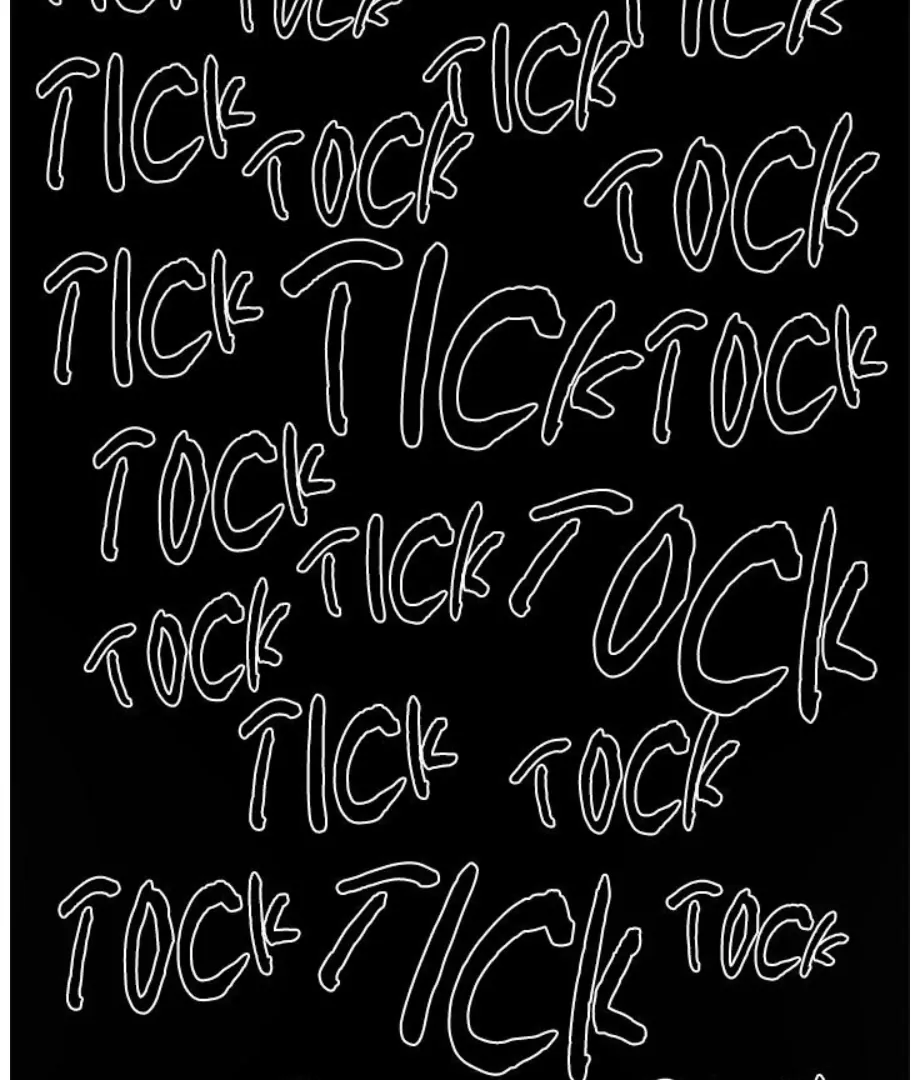 TOCK
TICK
TICK
TICK
TOCK
TOCK
TICK
TICK
TOCK
TOCK
TICK
TOCK
TOCK
TICK
TOCK
TOCK
TICK
TOCK